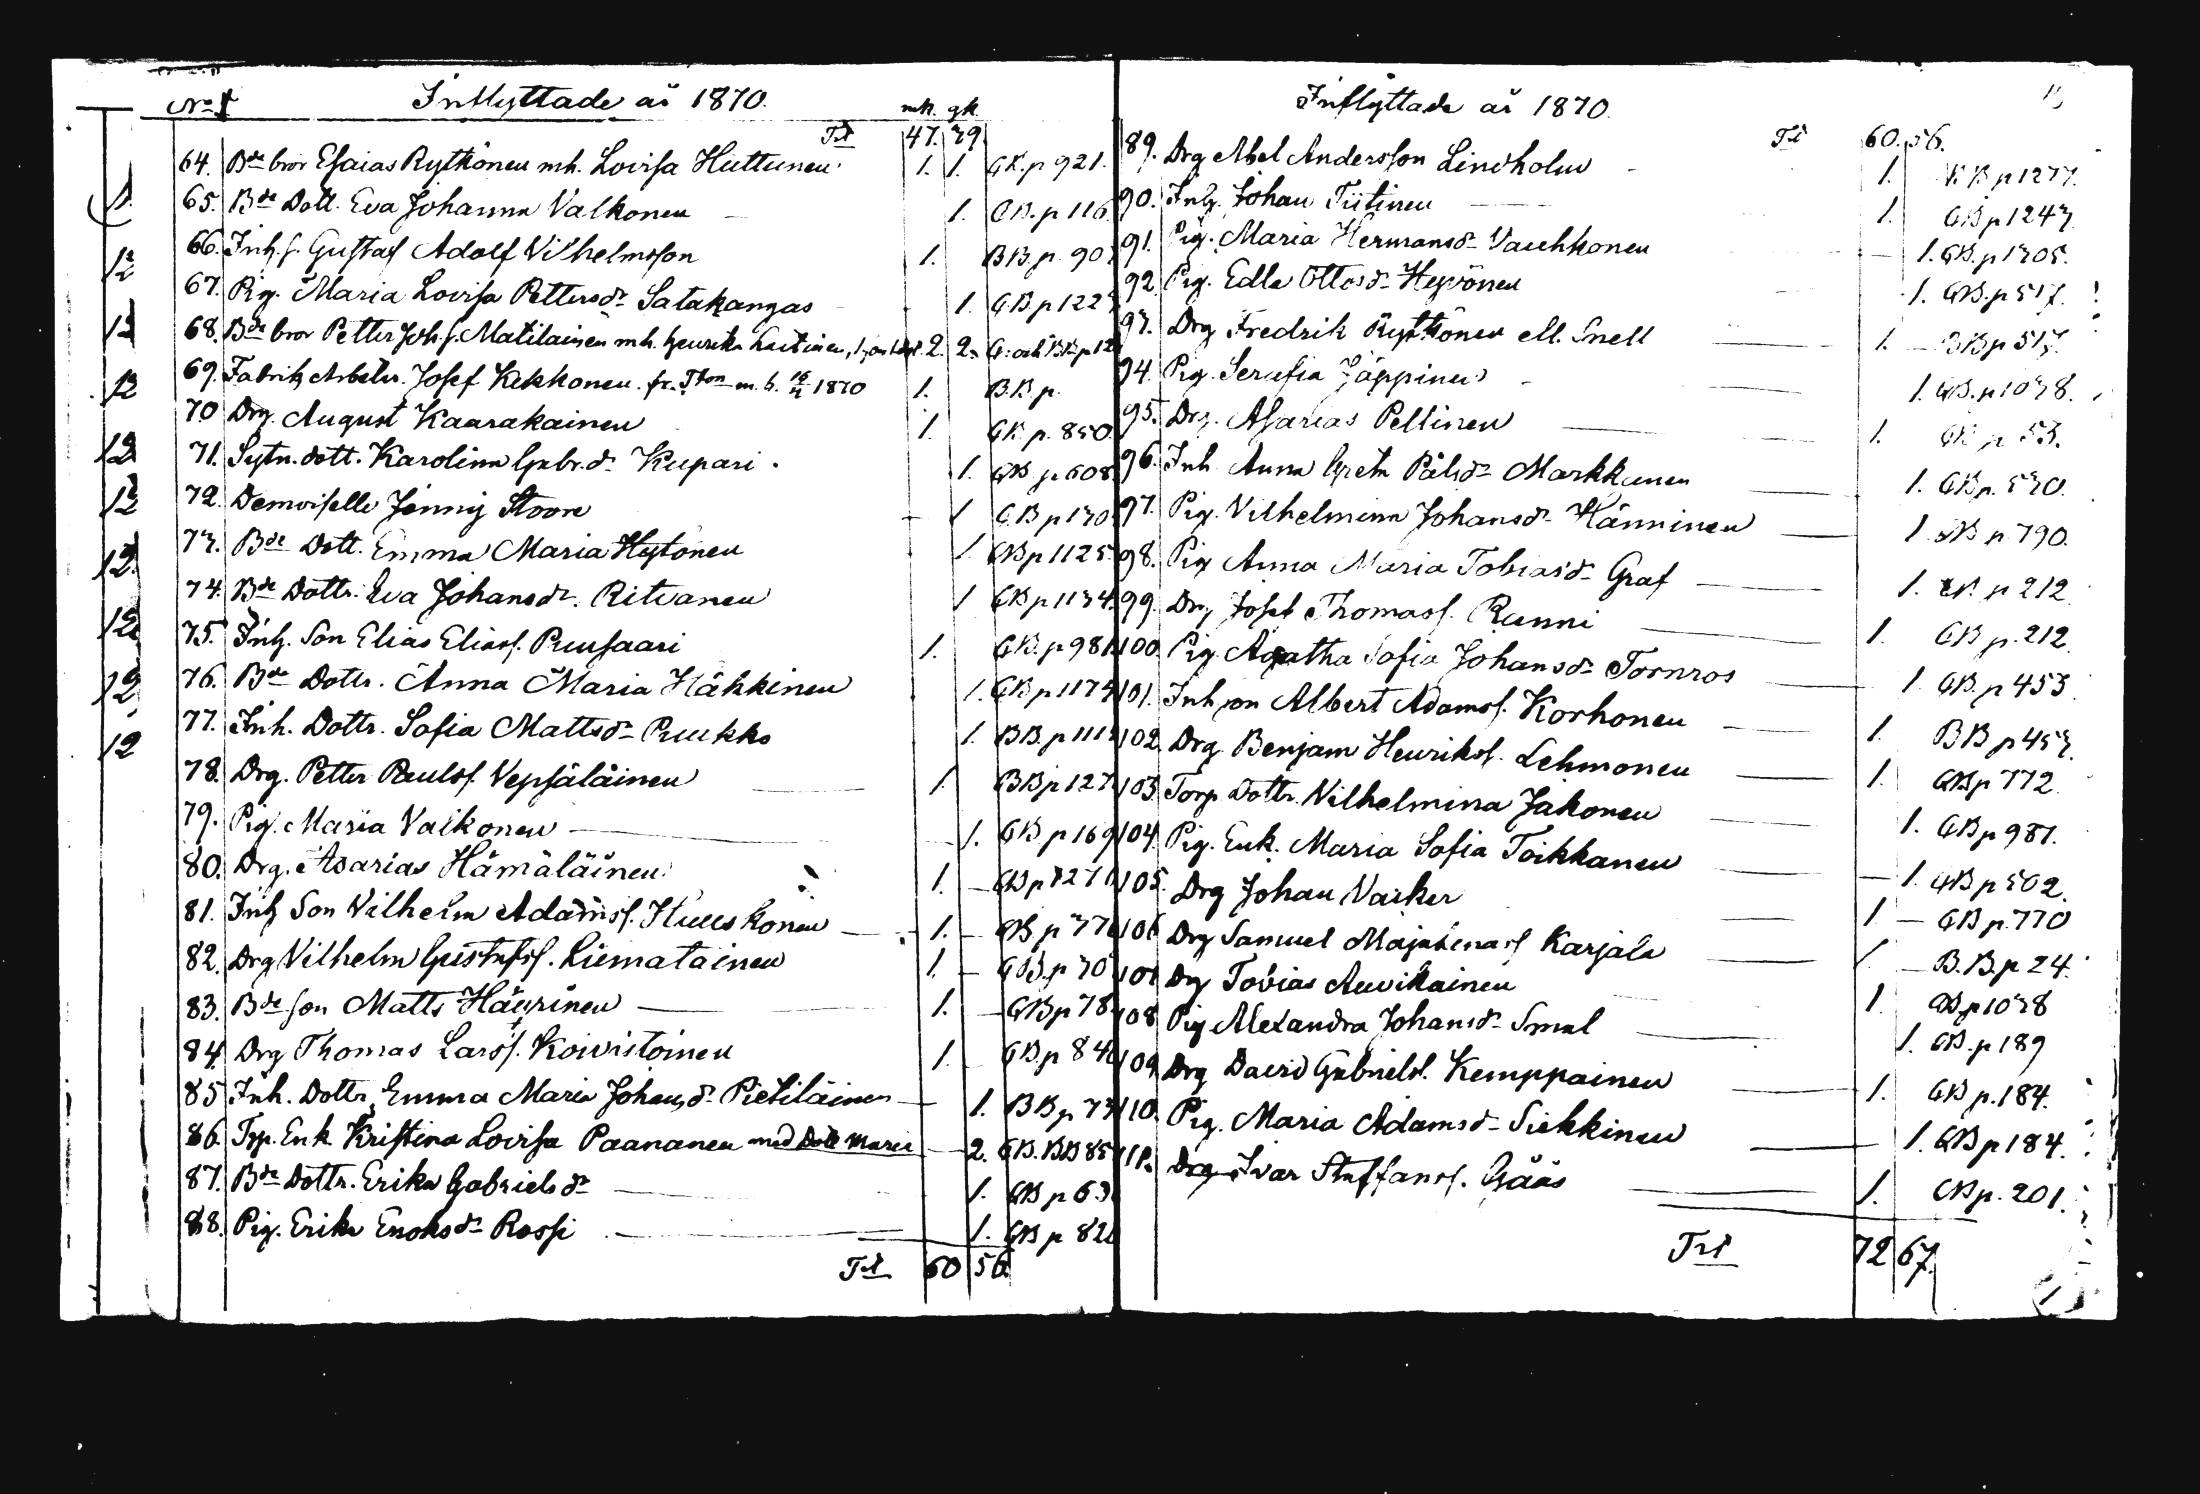 No Inflyttade år 1870. mk. qk.
Trt 47. 39.
64. Bde bror Esaias Rytkönen mh. Lovisa Huttunen 1. 1. GB. p 921.
65. Bde Dott. Eva Johanna Valkonen 1. GB. p 116.
66. Inh. s. Gustaf Adolf Vilhelmsson 1. BB. p. 90
67. Pig. Maria Lovisa Pettersdr Satakangas 1. GB p 122
68. Bde bror Petter Joh. s. Matilainen mh. Henrika 2. 2. G. och BB p 12
69. Fabriks Arbetr. Josef Kekkonen. 1870 1. B.B. p.
70 Drg. August Kaarakainen 1. GB. p. 850.
71. Sytn. dott. Karolina Gabr. dr Kupari. 1. GB p. 608
72. Demoiselle Jenny Stoore 1 GB p 130
73. Bde Dott. Emma Maria Hytönen 1. GB p 1125.
74. Bde Dottr. Eva Johansdr. Ritvanen 1 GB p 1134.
75. Inh. Son Elias Eliass. Puusaari 1. GB. p 981
76. Bde Dottr. Anna Maria Häkkinen 1. GB p 1174
77. Inh. Dottr. Sofia Mattsdr Puukko 1. BB. p 111
78. Drg. Petter Paulss. Vepsäläinen 1. BB p 127
79. Pig. Maria Valkonen 1. GB p 169
80. Drg. Asarias Hämäläinen 1. GB p 127
81. Inh Son Vilhelm Adamss. Huuskonen 1. GB p 77
82. Drg Vilhelm Gustafss. Liimatainen 1. GB. p 70
83. Bde son Matts Häyrinen 1. GB p 78
84. Drg Thomas Larss. Koivistoinen 1. GB. p 84
85 Inh. Dottr Emma Maria Johansdr Pietiläinen 1. BB p 73
86. Trp. Enk Kristina Lovisa Paananen med Dott Maria 2. GB. BB 85
87. Bde Dottr. Erika Gabrielsdr 1. GB p 63
88. Pig. Erika Enoksdr Rossi 1. GB p 82
Trt 60 56.
Inflyttade år 1870
Trt 60. 56.
89. Drg Abel Andersson Lindholm 1. BB p 1277.
90. Inh. Johan Tiitinen 1. GB p 1243
91. Pig. Maria Hermansdr Vauhkonen 1. GB. p 1305.
92 Pig. Edla Ottosdr Heyvönen 1. GB. p 517.
93. Drg Fredrik Rytkönen ell. Snell 1. BB p 515
94. Pig. Serafia Jäppinen 1. GB. p 1038.
95. Drg. Asarias Peltinen 1. GB p 53.
96. Inh Anna Greta Pålsdr Markkanen 1. GB p. 530.
97. Pig. Vilhelmina Johansdr Hänninen 1 GB p 790.
98. Pig Anna Maria Tobiasdr Graf 1. GB. p 212
99. Drg Josef Thomass. Runni 1. GB p. 212
100. Pig Agatha Sofia Johansdr Tornros 1. GB. p 453
101. Inh son Albert Adamss. Korhonen 1. BB p 453.
102. Drg Benjam Henrikss. Lehmonen 1. GB p 772.
103 Torp Dottr. Vilhelmina Jakonen 1. GB p 981.
104. Pig. Enk. Maria Sofia Toikkanen 1. GB p 502.
105. Drg Johan Vaiker 1 GB p. 770
106 Drg Samuel Karjala 1 B.B. p 24.
107 Drg Tobias Auvikainen 1. GB p 1038
108 Pig Alexandra Johansdr Smal 1. GB. p 189
109 Drg David Gabrielss. Kemppainen 1. GB p. 184.
110. Pig. Maria Adamsdr Siekkinen 1. GB p 184.
111. Drg Ivar Staffanss. Gääs 1. GB p. 201.
Trt 72 67.